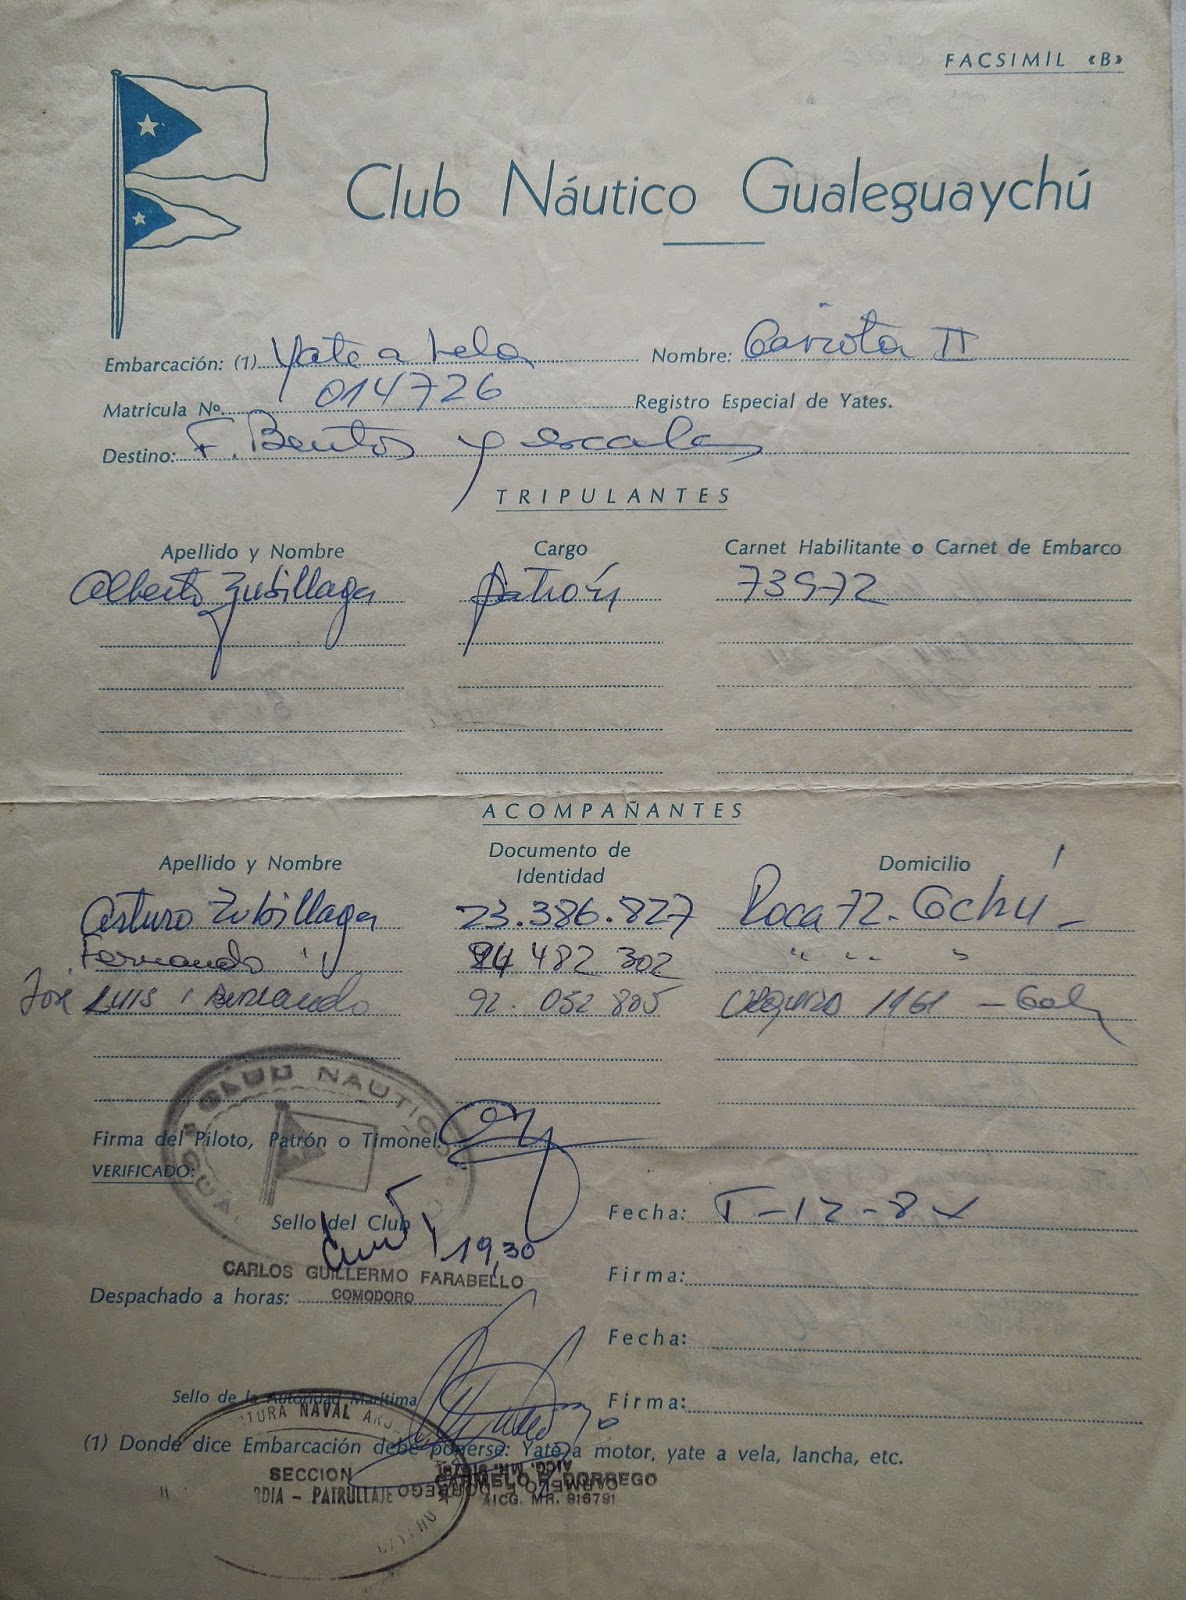 FACSIMIL «B»
Club Náutico Gualeguaychú
Embarcación: (1) Yate a vela Nombre: Gaviota II
Matrícula Nº 014726 Registro Especial de Yates.
Destino: F. Bentos y escalas
TRIPULANTES
Apellido y Nombre Cargo Carnet Habilitante o Carnet de Embarco
Alberto Zubillaga patrón 73972
ACOMPAÑANTES
Apellido y Nombre Documento de Identidad Domicilio
Arturo Zubillaga 23.386.827 Roca 72 - Gchú -
Fernando " 24 482 302 " " "
José Luis 92. 052 805 1161
CLUB NAUTICO
Firma del Piloto, Patrón o Timonel:
VERIFICADO:
Sello del Club Fecha:
19,30
CARLOS GUILLERMO FARABELLO
COMODORO
Firma:
Despachado a horas:
Fecha:
Sello de la Autoridad Marítima Firma:
TURA NAVAL AR
(1) Donde dice Embarcación debe ponerse: Yate a motor, yate a vela, lancha, etc.
SECCION
RDIA - PATRULLAJE
CARMELO E. DORREGO
AICG. MR. 916791